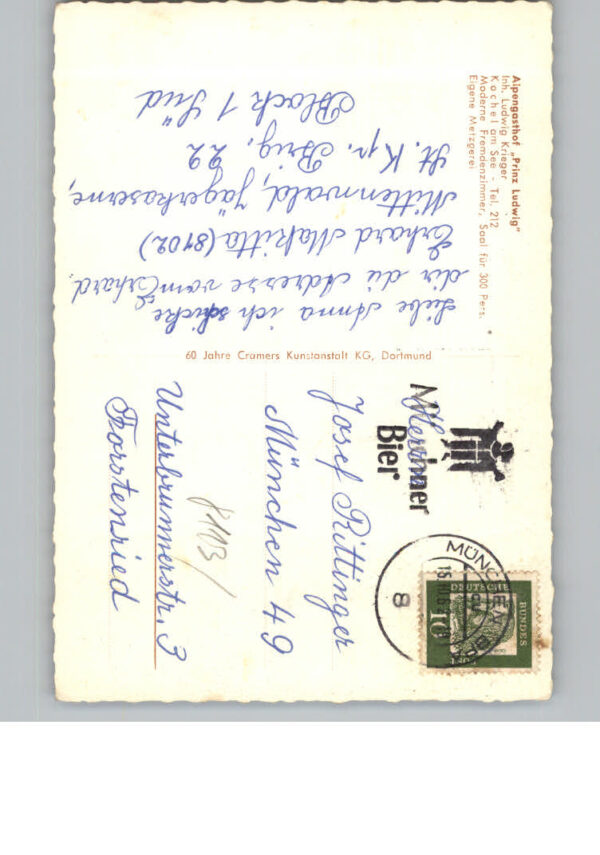 Alpengasthof „Prinz Ludwig"
Inh. Ludwig Krieger
Kochel am See - Tel. 212
Moderne Fremdenzimmer, Saal für 300 Pers.
Eigene Metzgerei
Liebe Anna ich schicke
dir die Adresse vom Erhard.
Erhard Makitta (8102)
Mittenwald, Jägerkaserne,
St. Kp. Brig. 22
Block 1 Süd
60 Jahre Cramers Kunstanstalt KG, Dortmund
Herrn
Josef Rittinger
München 49
Unterbrunnerstr. 3
Forstenried
8103/
Bier
MÜNCHEN
8
DEUTSCHE
BUNDES
10